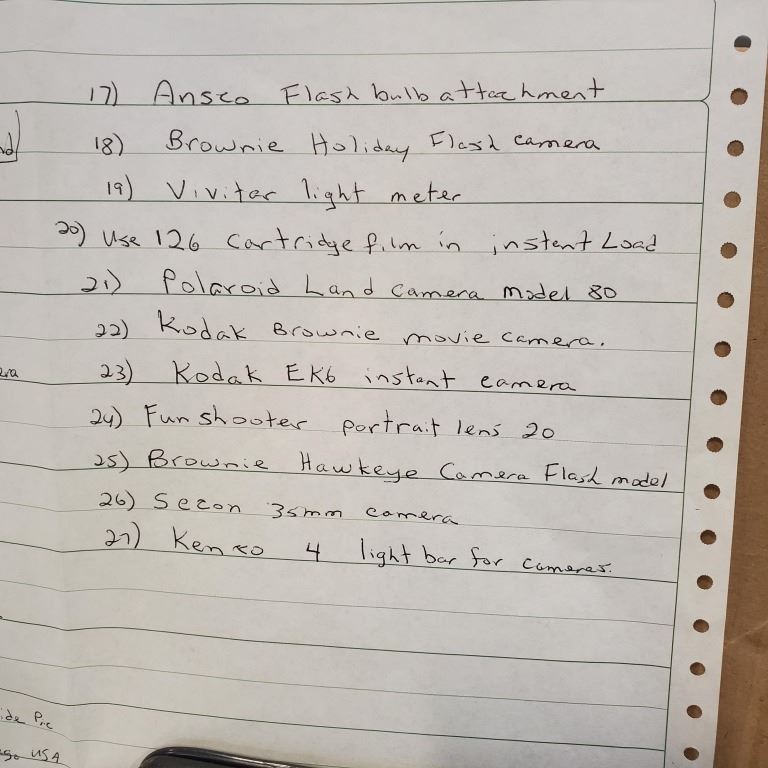 17) Ansco Flash bulb attachment
18) Brownie Holiday Flash camera
19) Vivitar light meter
20) Use 126 Cartridge film in instent Load
21) Polaroid Land Camera model 80
22) Kodak Brownie movie camera.
23) Kodak EK6 instant camera
24) Fun shooter portrait lens 20
25) Brownie Hawkeye Camera Flash model
26) Secon 35mm camera
27) Kenco 4 light bar for cameras.
ide Pic
go USA